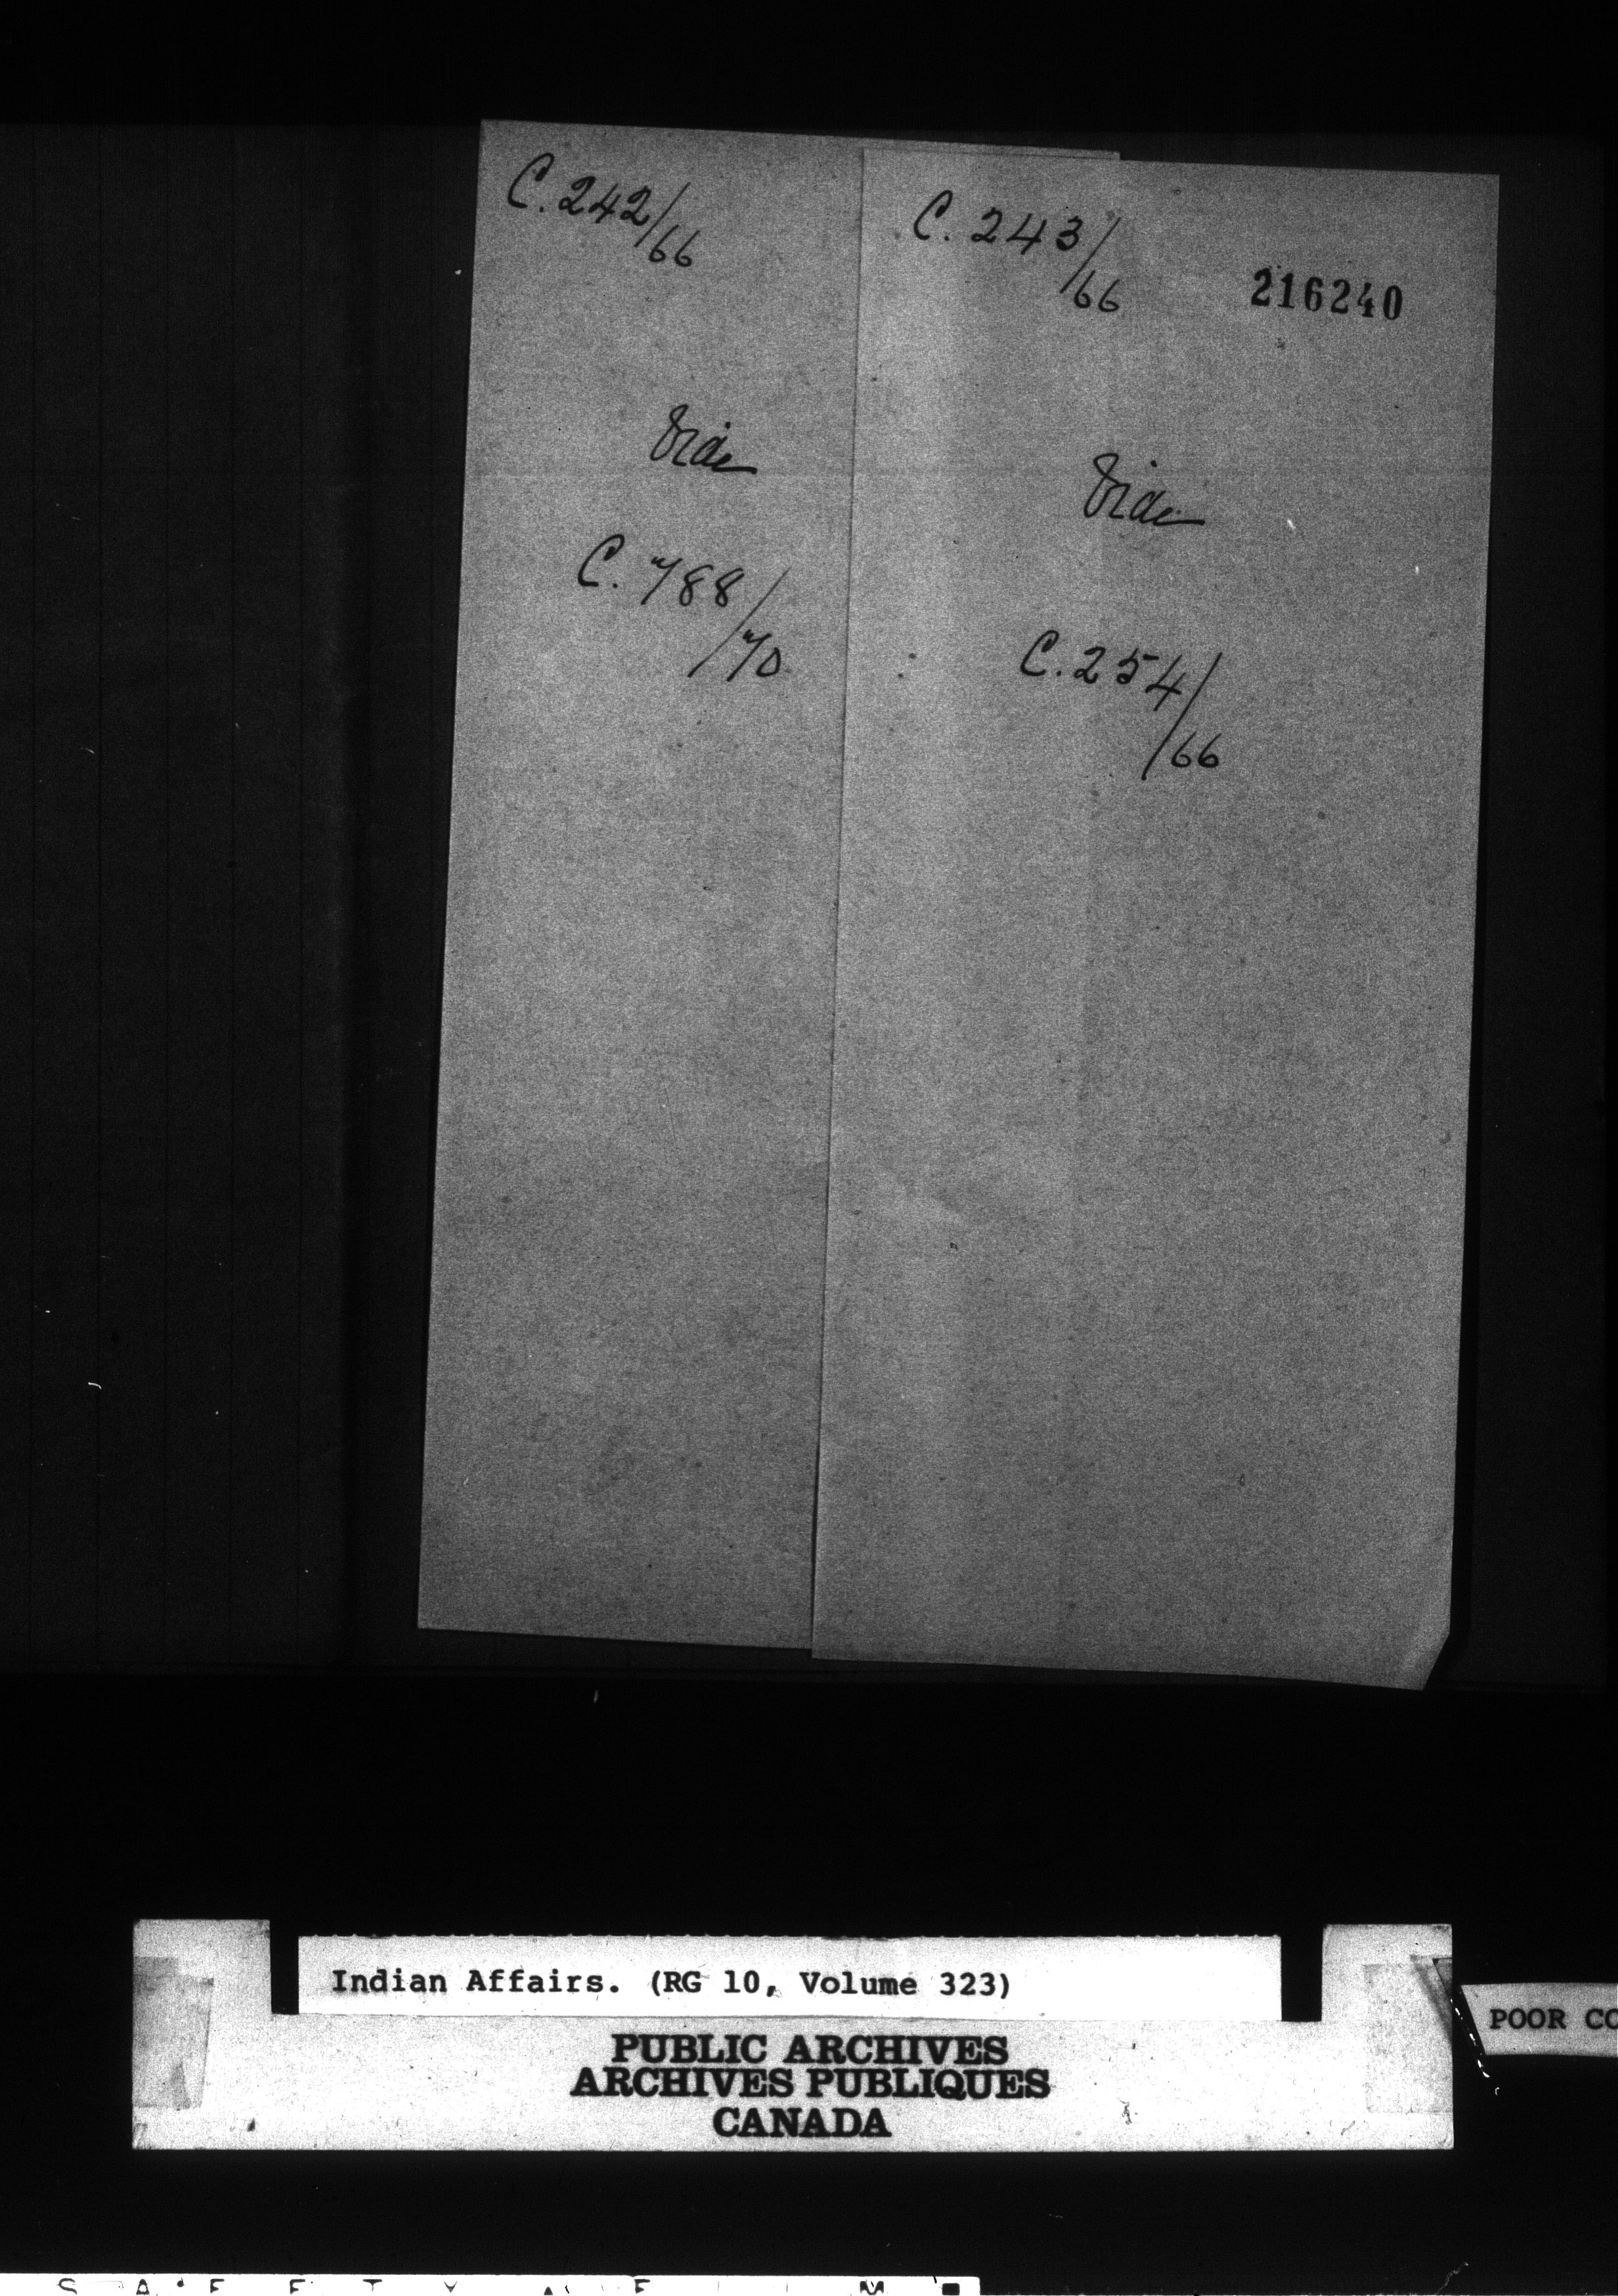 C. 242/66
Vide
C. 788/70
C. 243/66
216240
Vide
C. 254/66
Indian Affairs. (RG 10, Volume 323)
PUBLIC ARCHIVES
ARCHIVES PUBLIQUES
CANADA
POOR CO